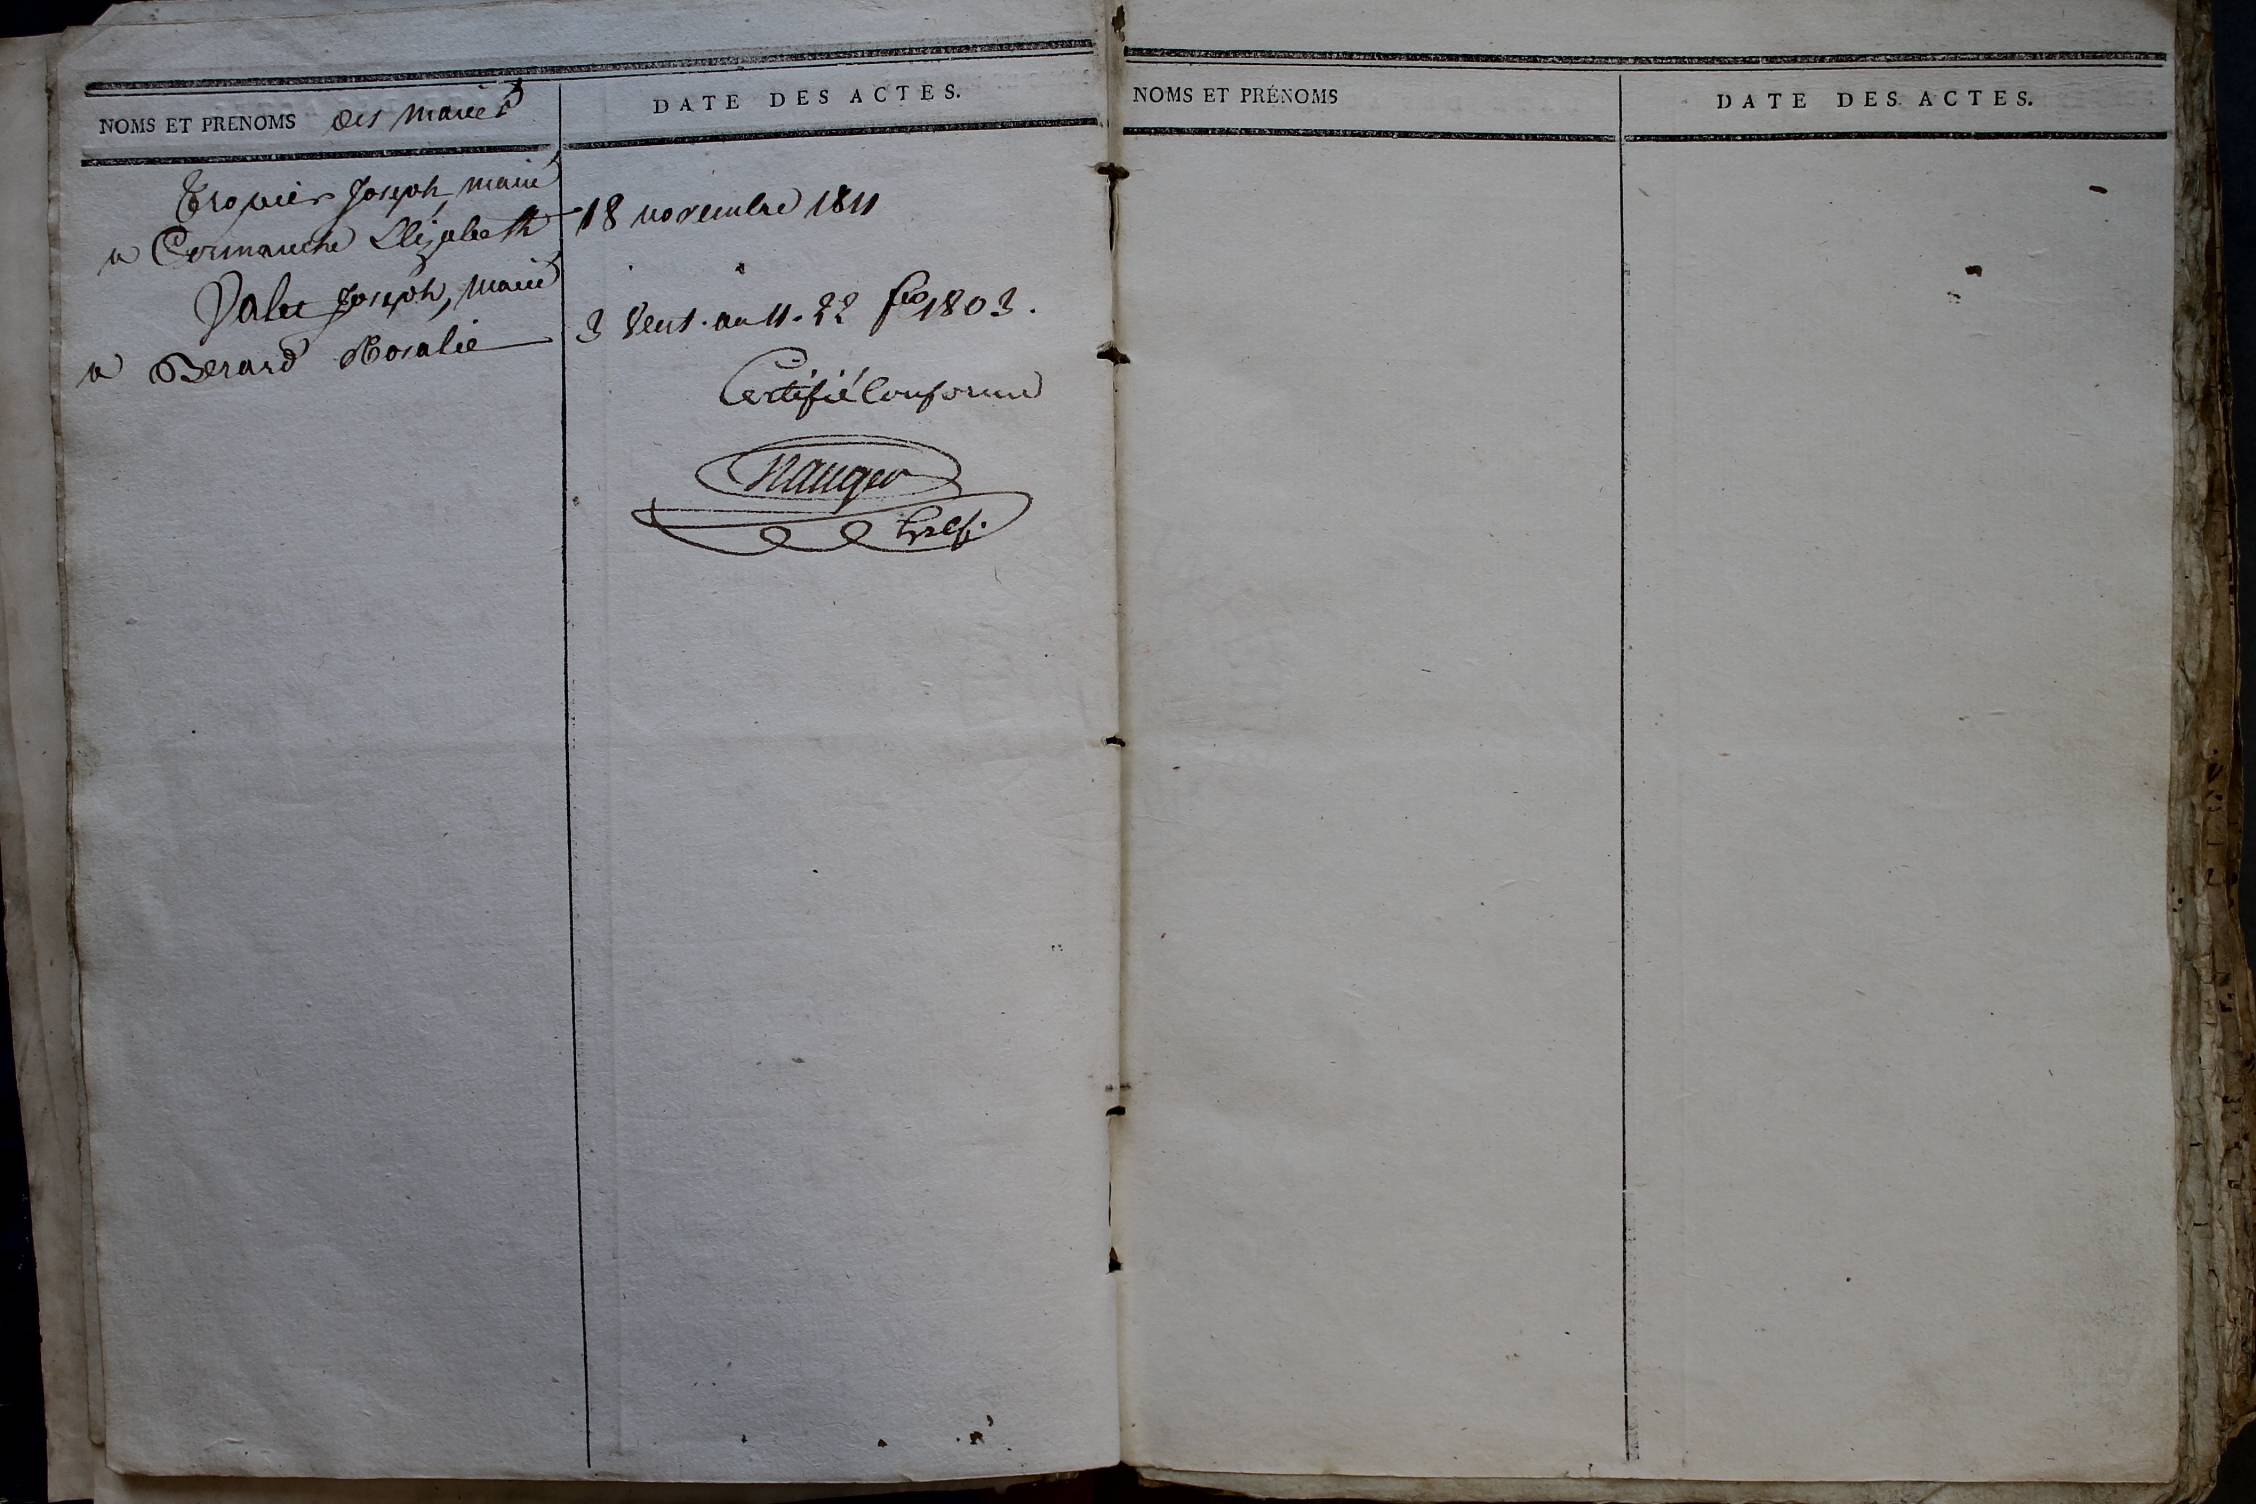 NOMS ET PRENOMS des mariés
DATE DES ACTES.
Tropier Joseph, marié
a Cormanche Elizabeth 18 novembre 1811
Valet Joseph, marié
a Berard Rosalie 3 Vent. an 11. 22 feo 1803.
Certifié Conforme
Greff.
NOMS ET PRÉNOMS
DATE DES ACTES.